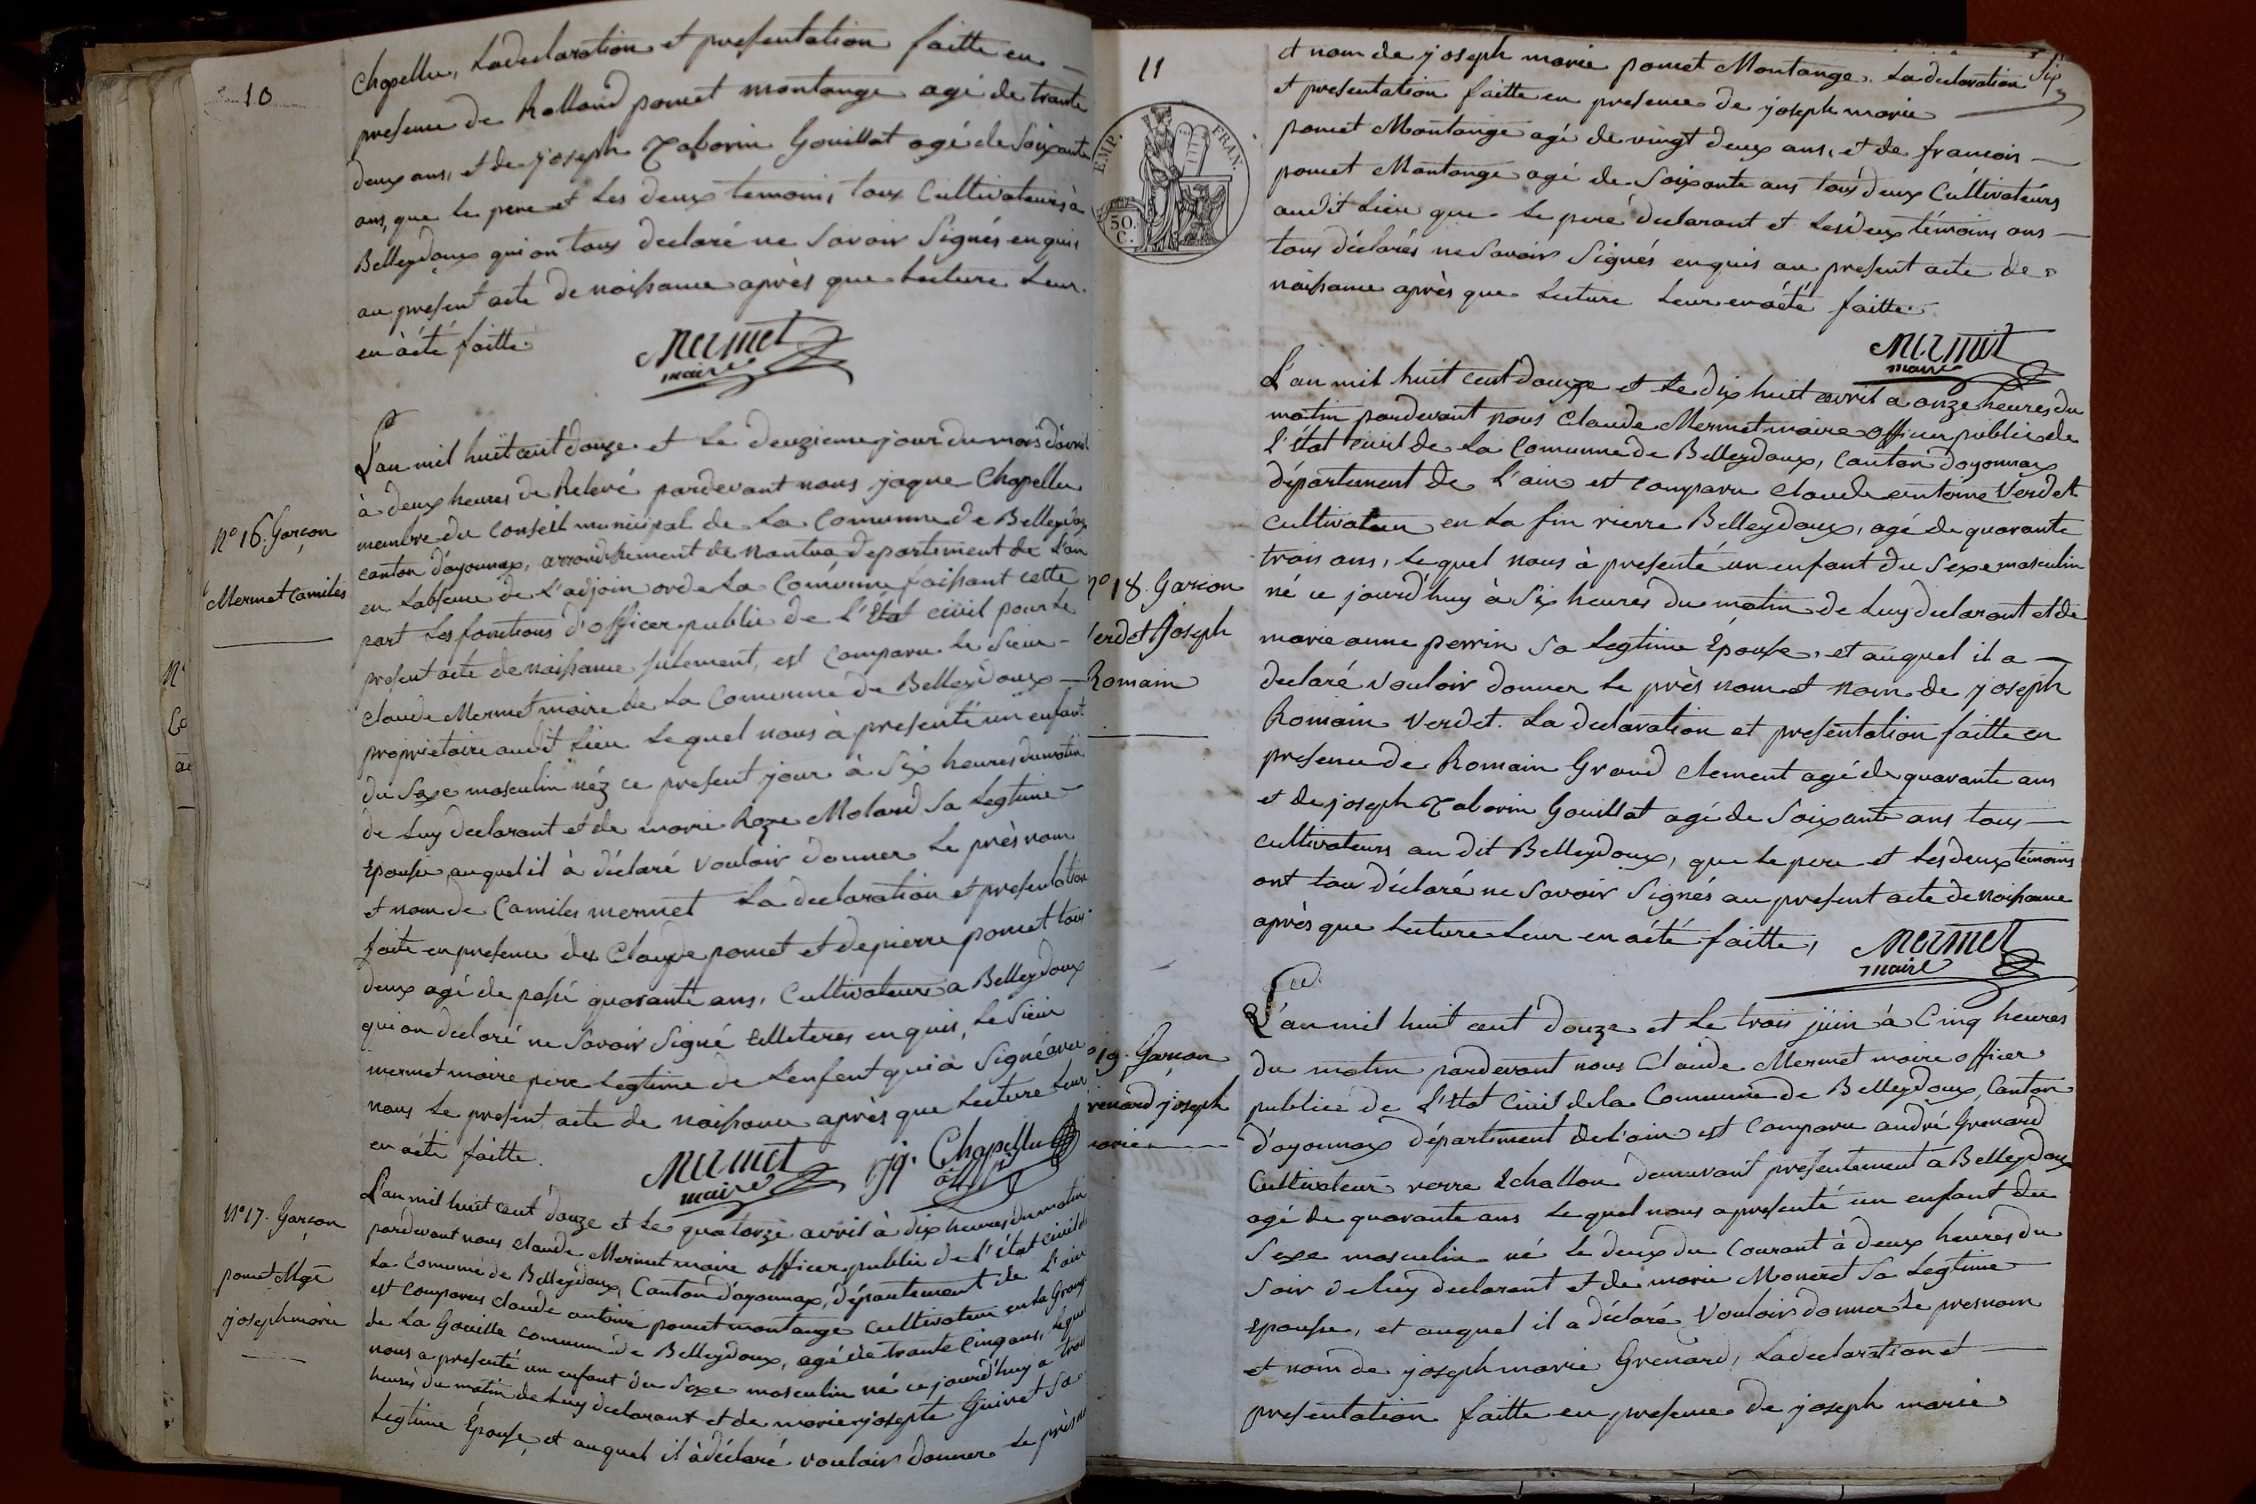 10
Chapellu, La declaration et presentation faitte en
presence de Rolland pomet montange agé de trante
deux ans, et de joseph Taborin Gouillot agé de Soixante
ans, que le pere et Les deux temoins, tous Cultivateurs à
Belleydoux qui on tous declaré ne Savoir Signés enquis
au present acte de naissance après que Lecture Leur
en à été faitte
Mermet
maire
L'an mil huit cent douze et Le deuzieme jour du mois d'avril
à deux heures de Relevé pardevant nous jaque Chapellu
membre du Conseil municipal de La Comunne de Belleydoux
canton d'ayonnax, arrondissement de nantua departement de L'ain
en Labsence de L'adjoin de La Comunne faissant cette
part Les fonctions d'officer public de L'État civil pour Le
present acte de naissance sulement, est Comparu Le Sieur
Claude Mermet maire de La Comunne de Belleydoux
proprietaire audit Lieu Lequel nous à presenté un enfant
du Sexe masculin néz ce present jour à Six heures du matin
de Luy declarant et de marie Roze Moland Sa Legtime
Epouse, auquel il à déclaré vouloir donner Le près nom
et nom de Camiles mermet La declaration et presentation
faite en presence de Claude pomet et de pierre pomet tous
deux agé de passé quarante ans, Cultivateurs a Belleydoux
qui on declaré ne Savoir Signé enquis, Le Sieur
mermet maire pere Legtime de L'enfent qui à Signé avec
nous Le present acte de naissance après que Lecture Leur
en à été faitte.
Mermet
maire
jq. Chapellu
L'an mil huit cent douze et Le quatorze avril à dix heures du matin
pardevant nous Claude Mermet maire officer public de L'état civil de
La Comunne de Belleydoux, Canton d'ayonnax, département de L'ain
est Comparus claude antoine pomet montange cultivateur en La Grange
de La Gouille commune de Belleydoux, agé de trante cinq ans, Lequel
nous a presenté un enfant du Sexe masculin né ce jourd'huy a trois
heures du matin de Luy declarant et de marie josepte Guinet Sa
Legtime Épouse, et auquel il à déclaré vouloir donner Le près nom
n° 16. Garçon
Mermet Camiles
n° 17. Garçon
pomet Mge
joseph marie
11
Six
et nom de joseph marie pomet Montange. La declaration
et presentation faitte en presence de joseph marie
pomet Montange agé de vingt deux ans, et de francois
pomet Montange agé de Soixante ans tous deux Cultivateurs
audit Lieu que Le pere declarant et Les deux témoins ons
tous déclarés ne Savoir Signés enquis au present acte de
naissance après que Lecture Leur en à été faitte.
EMP. FRAN.
50
C.
Mermet
maire
L'an mil huit cent douze et Le dix huit avril a onze heures du
matin pardevant nous Claude Mermet maire officer public de
L'état civil de La Comunne de Belleydoux, Canton d'ayonnax
département de L'ain est comparu claude antoine Verdet
Cultivateur en La fin rierre Belleydoux, agé de quarante
trois ans, Lequel nous à presenté un enfant du Sexe masculin
né ce jourd'huy à Six heures du matin de Luy declarant et de
marie anne perrin Sa Legtime Épouse, et auquel il a
declaré vouloir donner Le près nom et nom de joseph
Romain Verdet. La declaration et presentation faitte en
presence de Romain Grand Clement agé de quarante ans
et de joseph Taborin Gouillot agé de Soixante ans tous
Cultivateurs au dit Belleydoux, que Le pere et Les deux témoins
ont tous déclaré ne Savoir Signés au present acte de naissance
après que Lecture Leur en à été faitte,
Mermet
maire
n° 18. Garcon
Verdet Joseph
Romain
L'an mil huit cent douze et Le trois juin à Cinq heures
du matin pardevant nous Claude Mermet maire officer
public de L'état Civil de La Comunne de Belleydoux, Canton
d'ayonnax département de L'ain est Comparu andré Grenard
Cultivateur rerre Echallon demeurant presentement à Belleydoux
agé de quarante ans Lequel nous a presenté un enfant du
Sexe masculin né Le deux du Courant à deux heures du
Soir de Luy declarant et de marie Moneret Sa Legtime
Epouse, et auquel il a déclaré vouloir donner Le presnom
et nom de joseph marie Grenard, La declaration et
presentation faitte en presence de joseph marie
19. Garcon
renard joseph
marie